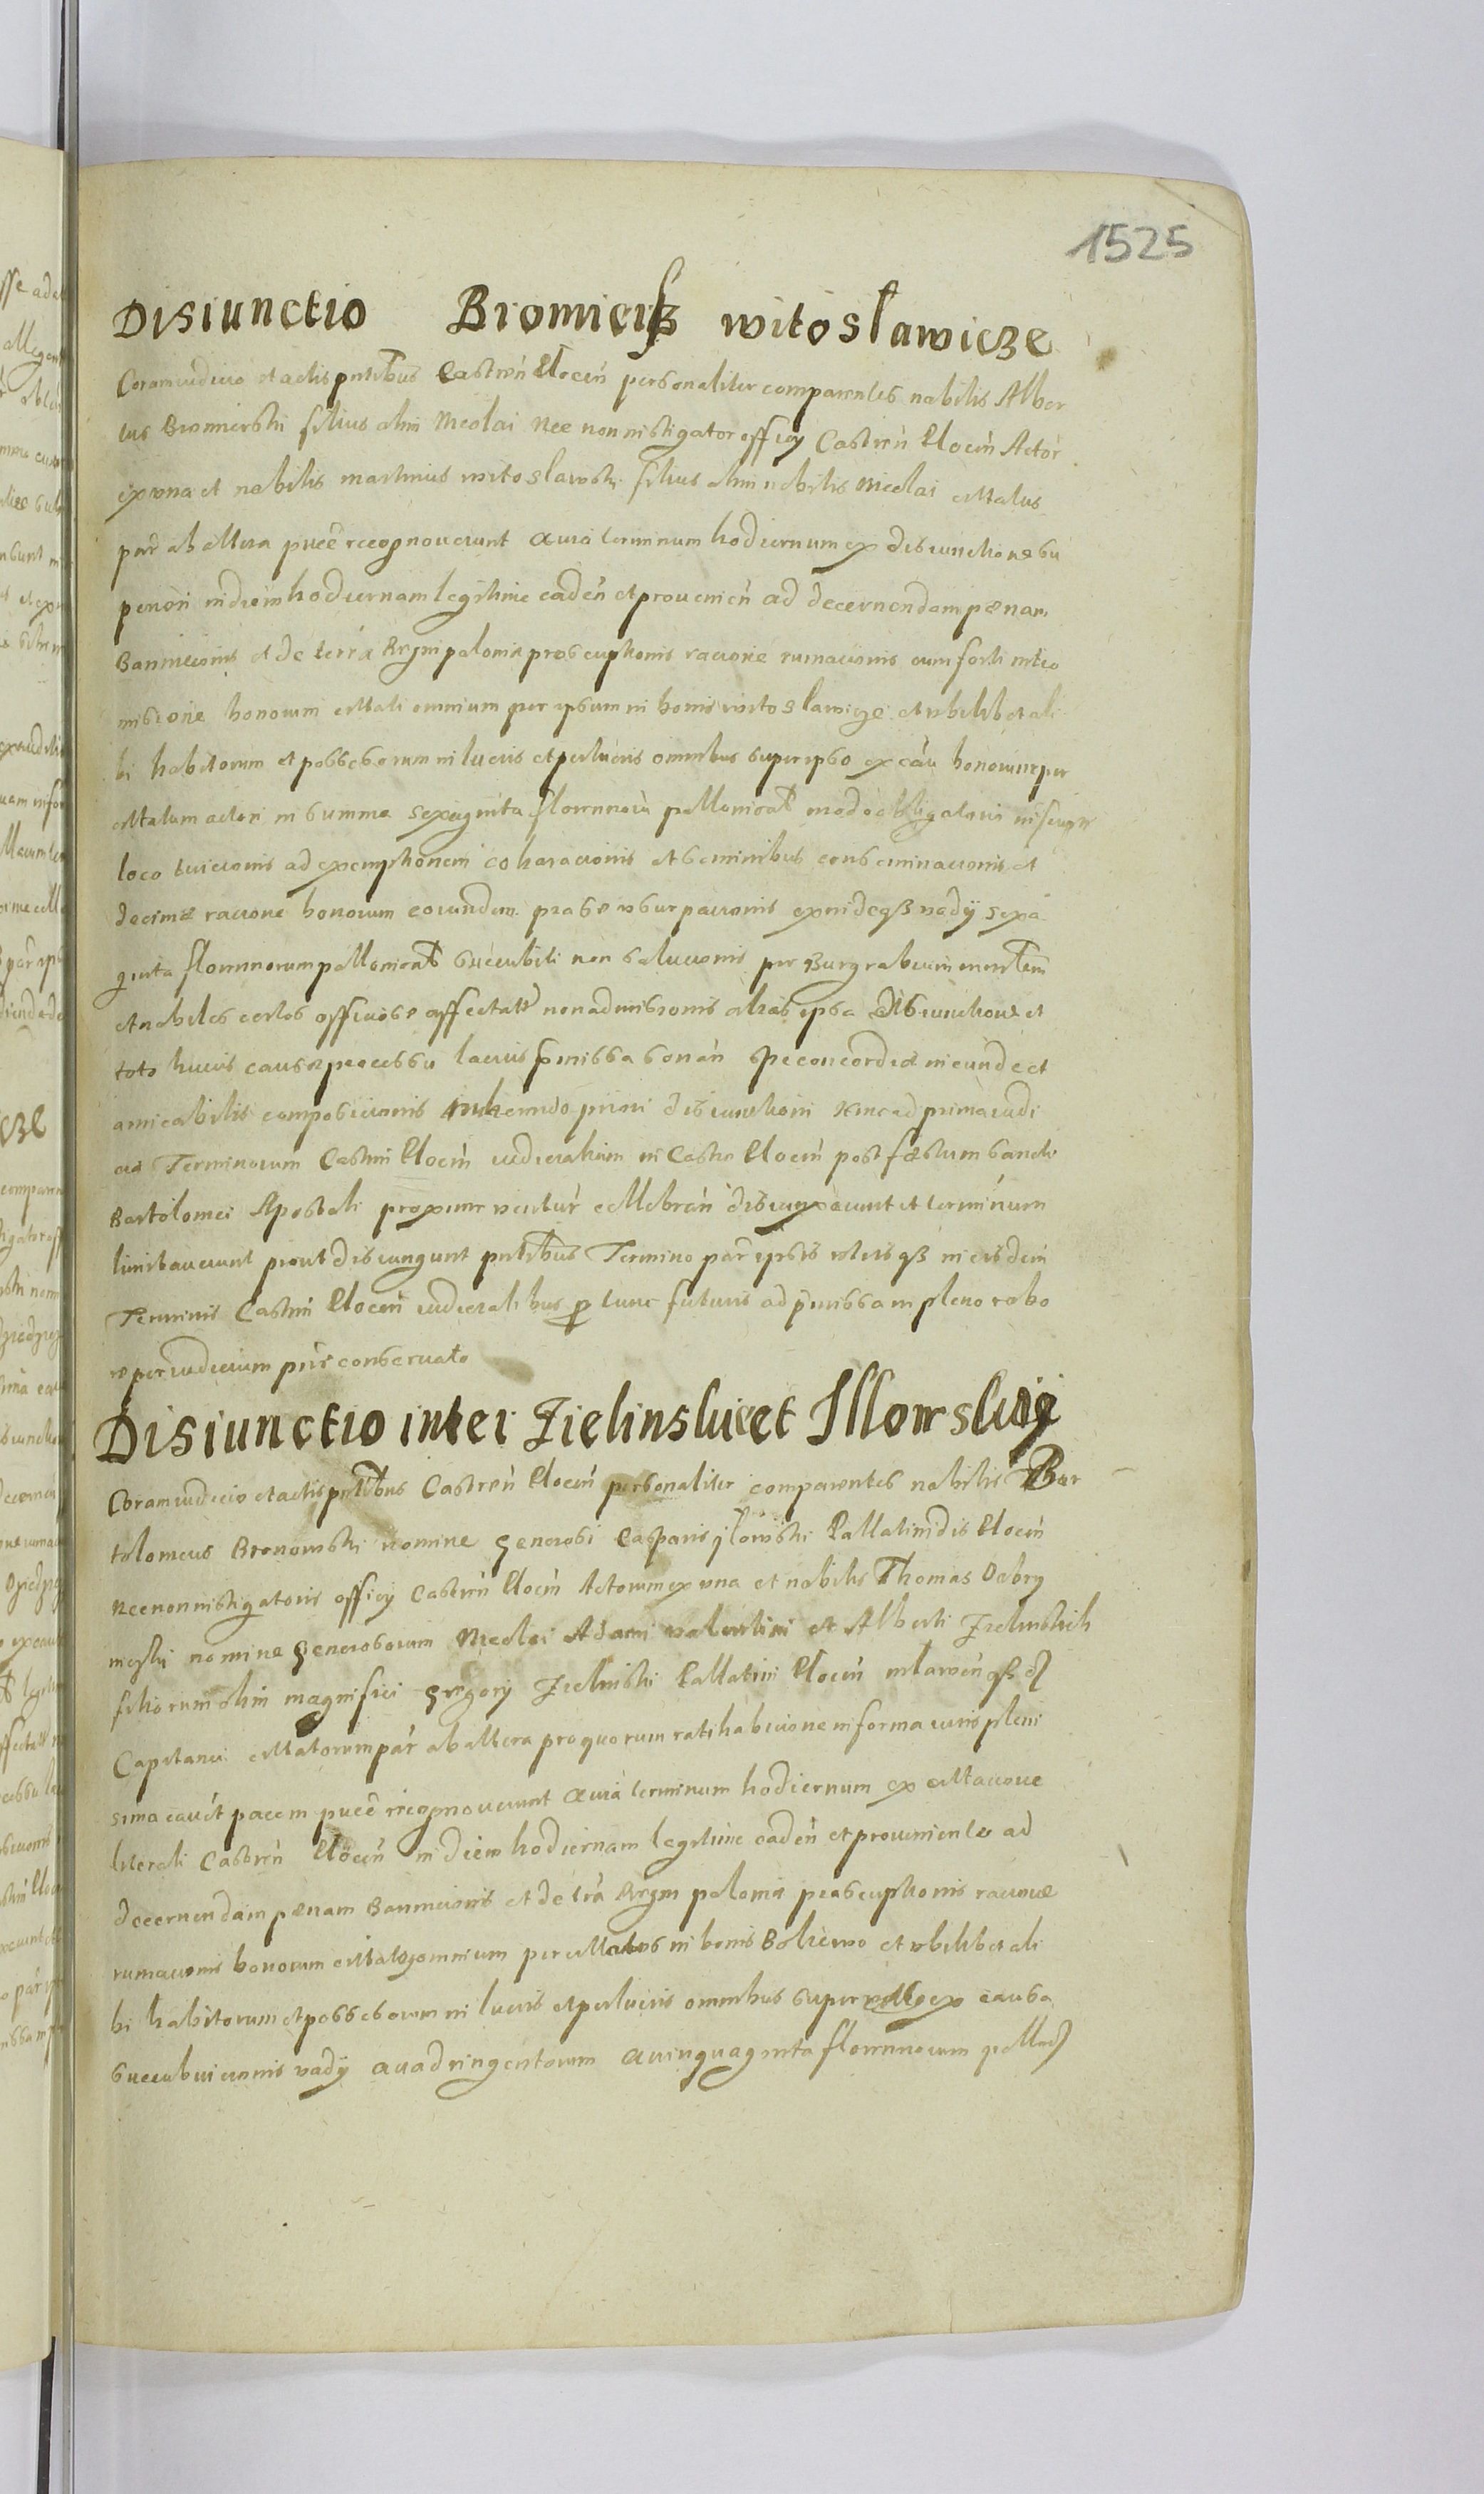 1525
Disiunctio Bromiersz witoslawicze
Coram iudicio et actis pntibus Castren Plocen personaliter comparentes nobilis Alber
tus Bromierski filius olim Nicolai Nec non instigator officy Castren Plocen Actor
ex una et nobilis martinus witoslawski filius olim nobilis Nicolai cittatus
par ab altera pucē recognouerunt Quia terminum hodiernum ex disiunctione su
periori in diem hodiernam legittime caden et prouenien ad decernendam pœnam
Bannicionis et de terra Regni polonia proscuptionis racione rumacionis cum forti intro
missione bonorum cittati omnium per ipsum in bonis witoslawicze et vbilibet ali
bi habitorum et possessorum in lucris et perlucris omnibus super ipso ex cau bonorum per
cittatum actori in summa sexaginta florennorū pollonicat modo obligatorio inscript
loco tuicionis ad exemptionem coharacionis et seminibus conseminacionis et
decimæ racione bonorum eorundem præse vsurpacionis exindeqʒ vadij sexa
ginta florennorum pollonicat succubiti non solucionis per Burgrabium
et nobiles certos officiose affectatæ non admissionis alias ipsa Disiunctione et
toto huius causæ processu lacius pmissa sonan spe concordiæ ineundæ et
amicabilis composicionis inhærendo priori disiunctioni hinc ad prima iudi
cia Terminorum Castren Plocen iudicialium in Castro Plocen post fæstum sancti
Bartolomei Apostoli proxime ventur cellebran disiunxerunt et terminum
limitauerunt prout disiungunt pntibus Termino par ipsis vtrisqʒ in eisdem
Terminis Castren Plocen iudicialibus p tunc futuris ad pmissa in pleno robo
re per iudicium pns conseruato
Disiunctio inter Zielinskiet Illowskij
Coram iudicio et actis pntibus Castren Plocen personaliter comparentes nobilis Bar
tolomeus Bronowski nomine generosi Casparis jlowski Pallatinidis Plocen
Nec non instigatoris officy Castren Plocen Actorum ex una et nobilis Thomas Dobrz
nomine generosorum Nicolai Adami valentini et Alberti Zielinskich
filiorum olim magnifici gregorij Zielinski Pallatini Plocen mlawen qʒ
Capitanei cittatorum par ab altera pro quorum ratihabicione in forma iuris pleni
sima cauit pacem pucē recognouerunt Quia terminum hodiernum ex cittacione
literali Castren Plocen in diem hodiernam legitime caden et proueniente ad
decernendam pœnam Bannicionis et de tra Regni polonia proscuptionis racione
rumacionis bonorum cittatoꝝ omnium per cittatos in bonis et vbilibet ali
bi habitorum et possessorum in lucris et perlucris omnibus super ex causa
succubuicionis vadij Quadringentorum Quinquaginta florennorum pollo